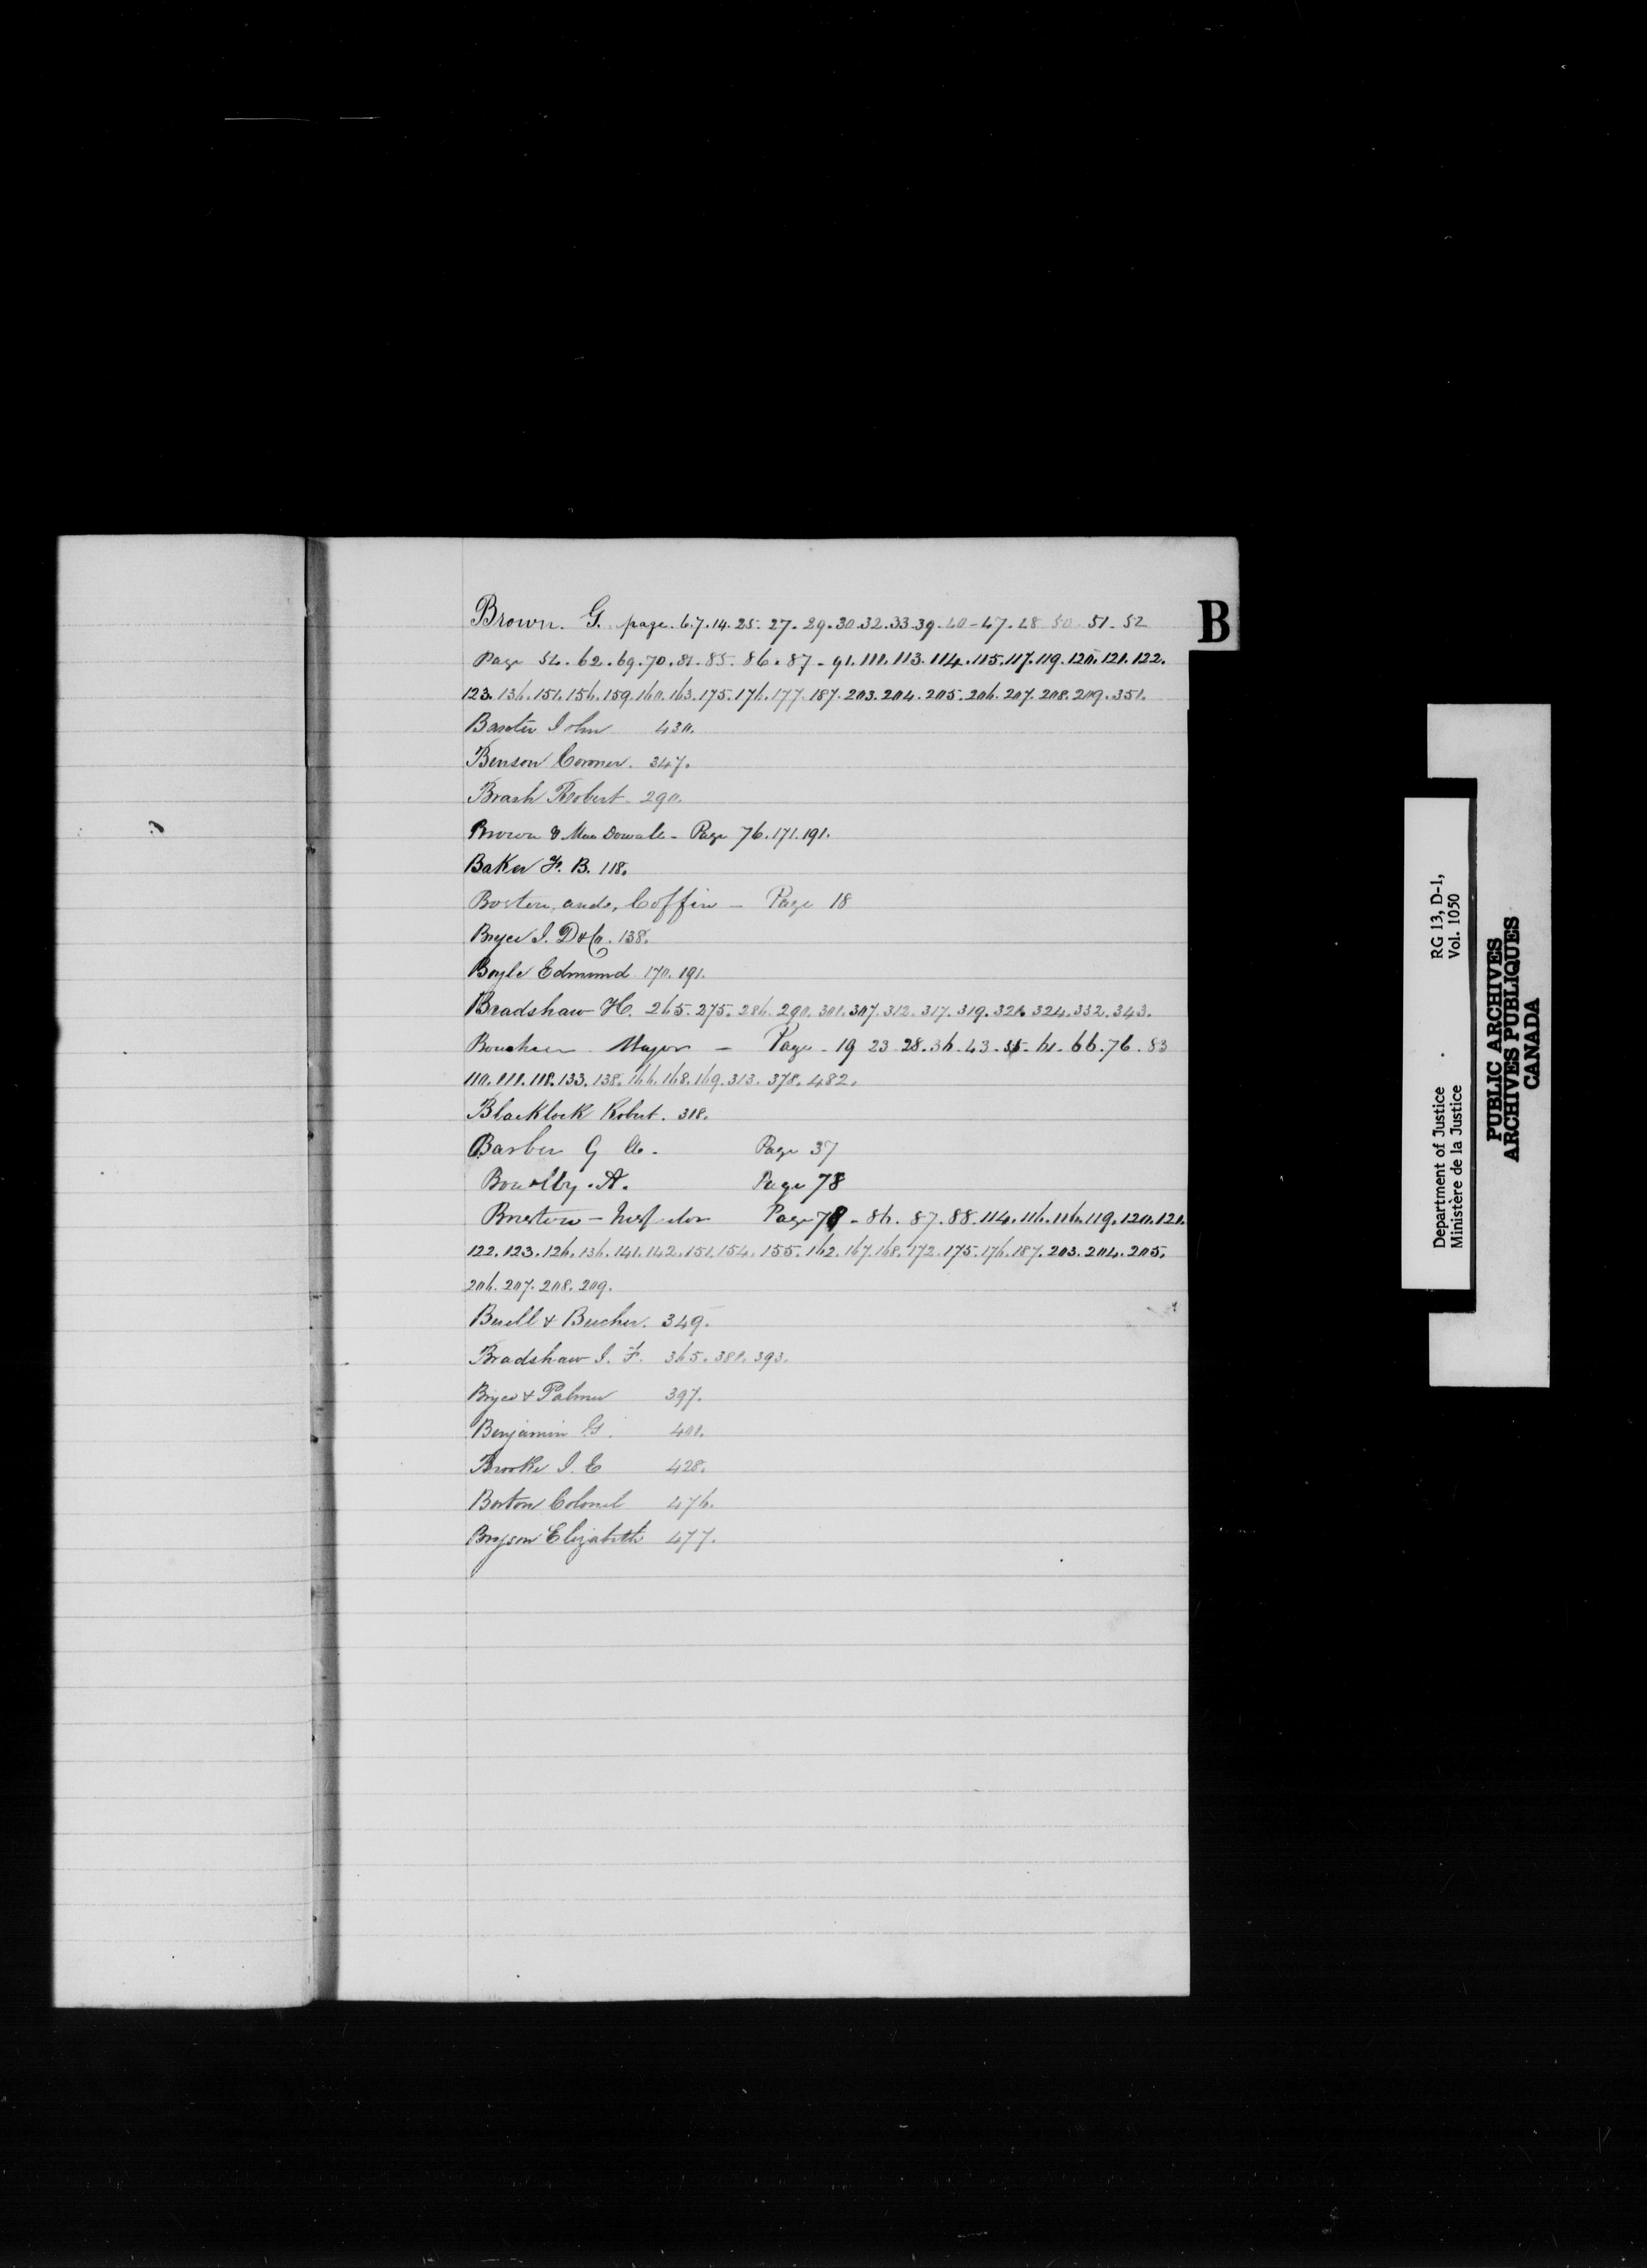 B
Brown. G. page. 6.7.14.25.27.29.30.32.33.39.40-47.48 50 51-52
Page 54.62.69.70.81.85.86.87-91.111.113.114.115.117.119.120.121.122.
123.136.151.156.159.160.163.175.176.177.187.203.204.205.206.207.208.209.351.
Baxter John 430.
Benson Coroner. 347.
Brash Robert 290.
Brown & MacDowall - Page 76.171.191.
Baker F. B. 118.
Boston, ande, Coffin - Page 18
Bryce J. D & Co. 138.
Boyle Edmund 170.191.
Bradshaw H. 265.275.286.290.301.307.312.317.319.321.324.332.343.
Major - Page - 19 23 28.36.43. 66.76.83
110.111.118.133.138.166.168.169.313.378.482.
Blacklock Robert. 318.
Barber G A. Page 37
Boultby. A. Page 78
Page 78 - 86.87.88.114.116.116.119.120.121.
122.123.126.136.141.142.151.154.155.162.167.168.172.175.176.187.203.204.205.
206.207.208.209.
Buell & Beecher. 349.
Bradshaw J. F. 365.381.393.
Bryce & Palmer 397.
Benjamin G. 401.
Brooke J. E 428.
Borton Colonel 476.
Bryson Elizabeth 477.
Department of Justice RG 13, D-1,
Ministère de la Justice Vol. 1050
PUBLIC ARCHIVES
ARCHIVES PUBLIQUES
CANADA